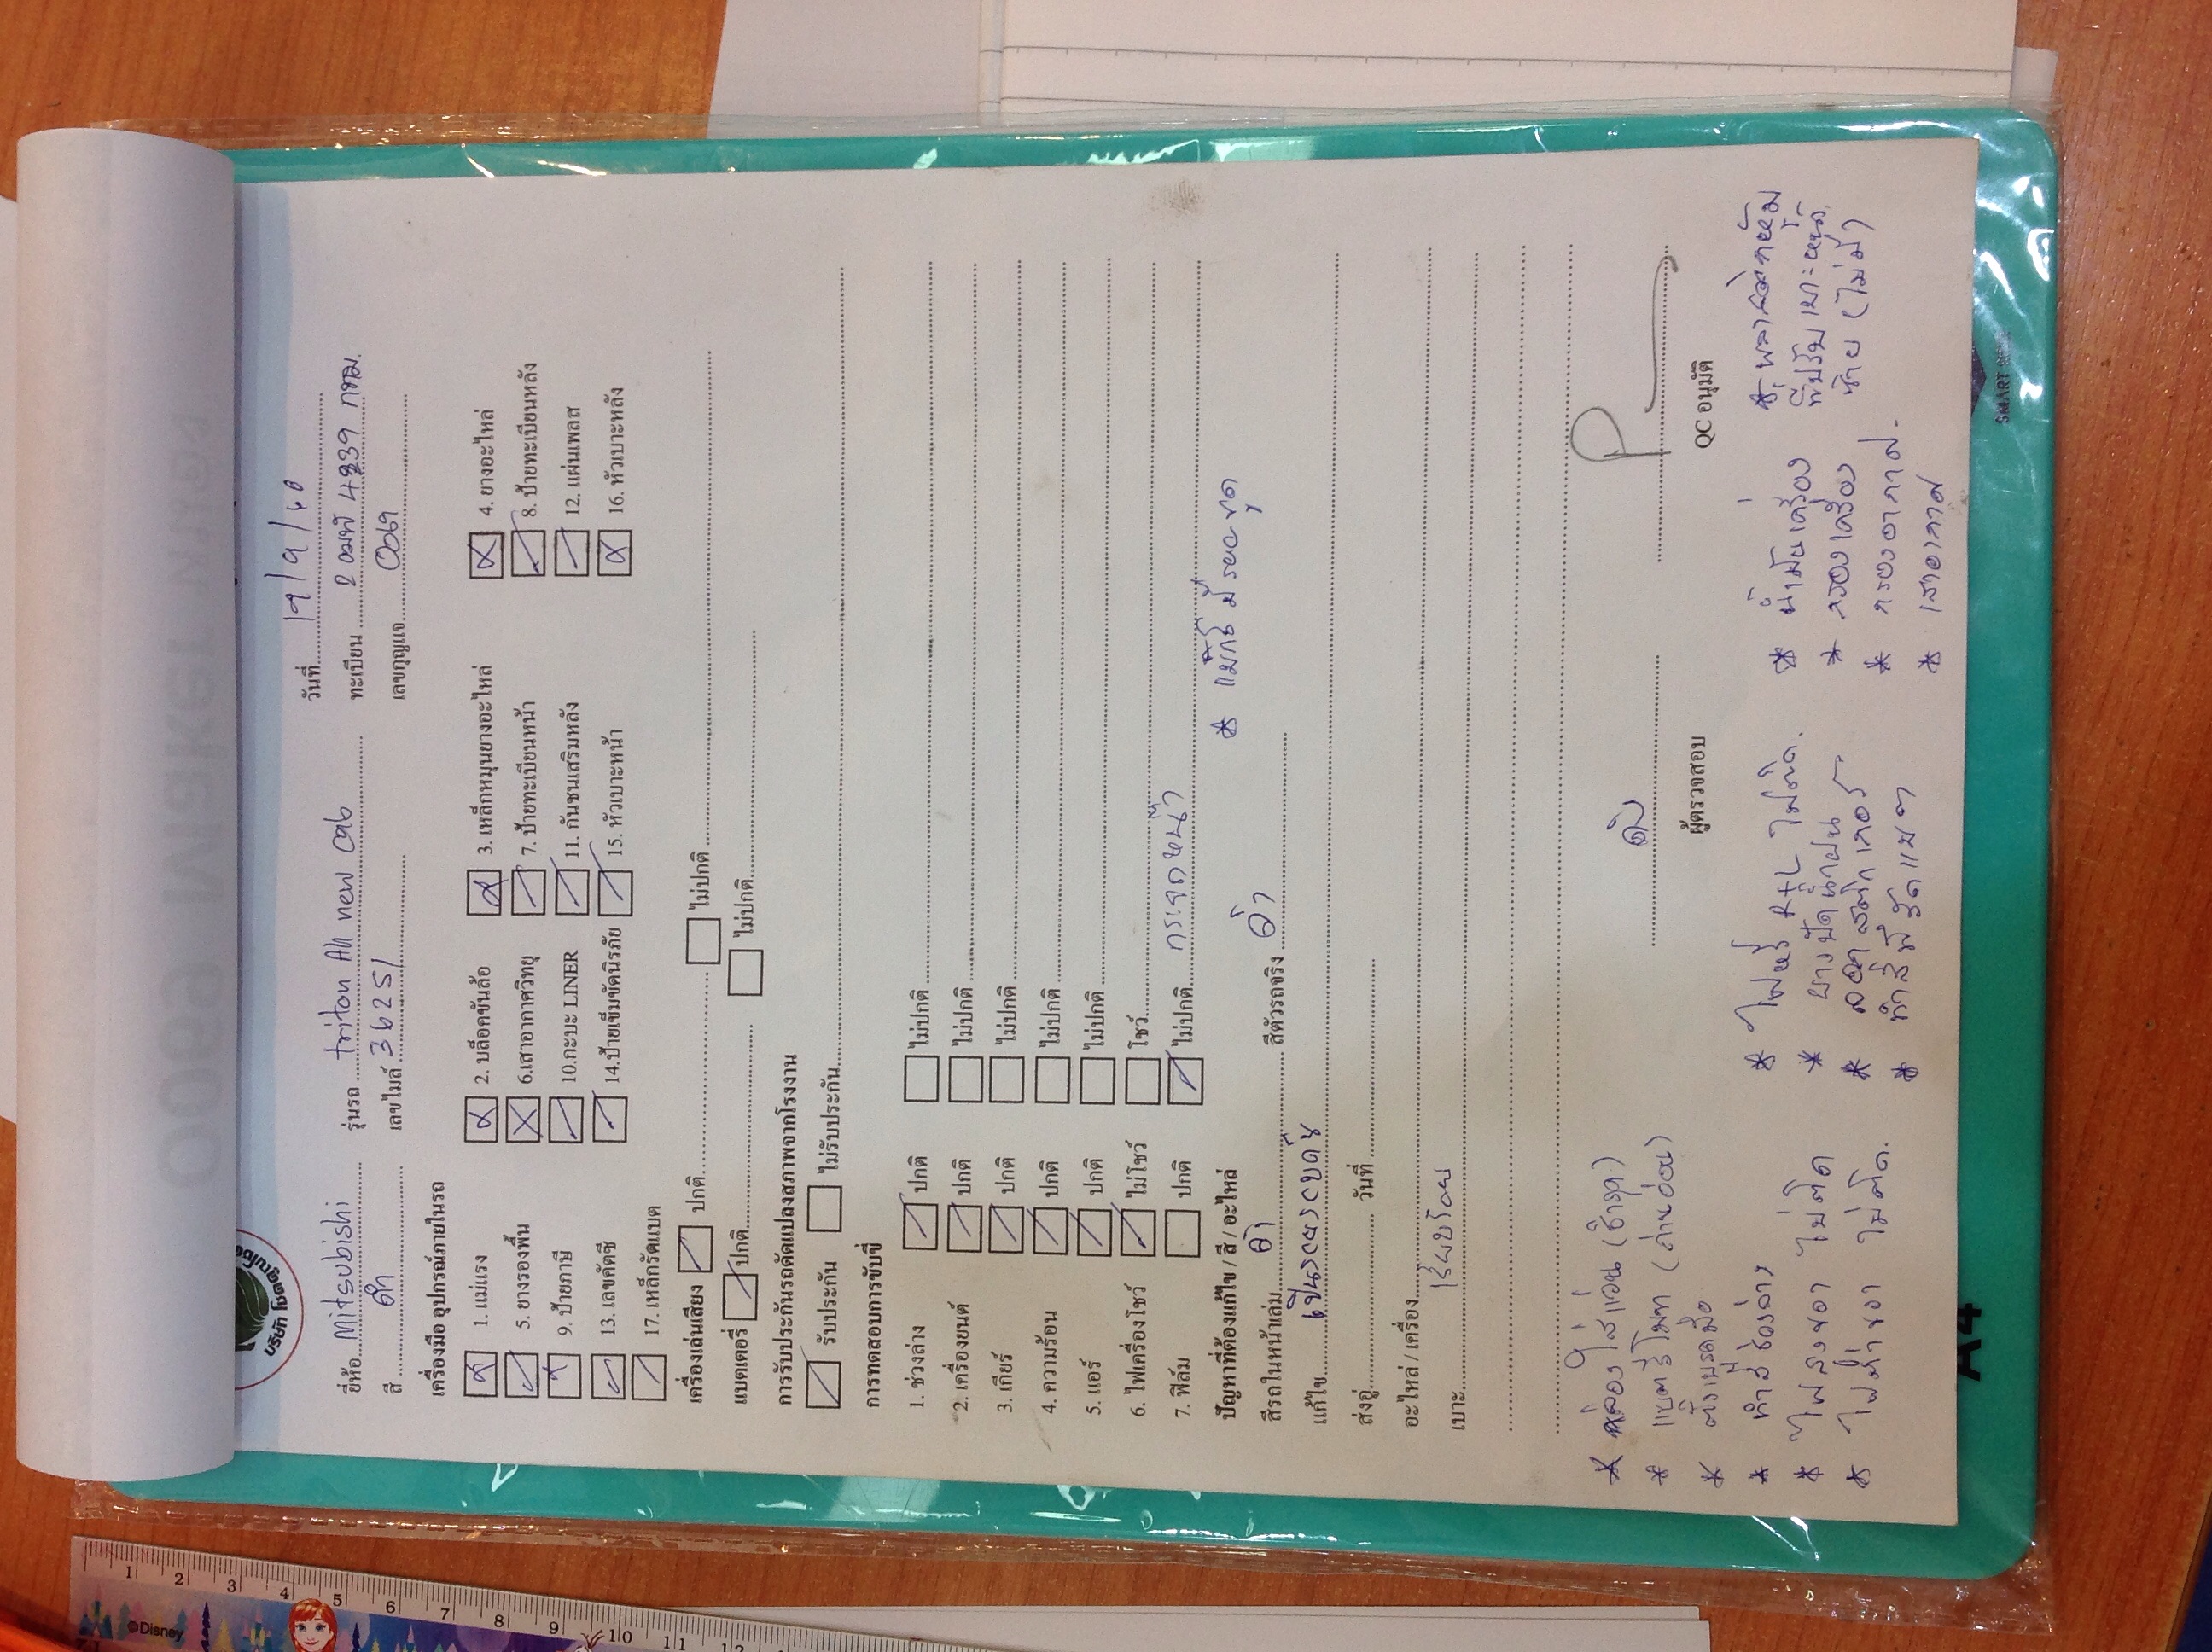 วันที่ 19/9/60
ยี่ห้อ Mitsubishi รุ่นรถ triton All new cab ทะเบียน 2ฒฬ 4239 กทม.
สี ดำ เลขไมล์ 36251 เลขกุญแจ 0069
เครื่องมือ อุปกรณ์ภายในรถ
1. แม่แรง 2. บล็อคขันล้อ 3. เหล็กหมุนยางอะไหล่ 4. ยางอะไหล่
5. ยางรองพื้น 6.เสาอากาศวิทยุ 7. ป้ายทะเบียนหน้า 8. ป้ายทะเบียนหลัง
9. ป้ายภาษี 10.กะบะ LINER 11. กันชนเสริมหลัง 12. แผ่นเพลส
13. เลขคัดซี 14.ป้ายเข็มขัดนิรภัย 15. หัวเบาะหน้า 16. หัวเบาะหลัง
17. เหล็กรัดแบต
เครื่องเล่นเสียง ปกติ ไม่ปกติ
แบตเตอรี่ ปกติ ไม่ปกติ
การรับประกันรถดัดแปลงสภาพจากโรงงาน
รับประกัน ไม่รับประกัน
การทดสอบการขับขี่
1. ช่วงล่าง ปกติ ไม่ปกติ
2. เครื่องยนต์ ปกติ ไม่ปกติ
3. เกียร์ ปกติ ไม่ปกติ
4. ความร้อน ปกติ ไม่ปกติ
5. แอร์ ปกติ ไม่ปกติ
6. ไฟเครื่องโชว์ ไม่โชว์ โชว์
7. ฟิล์ม ปกติ ไม่ปกติ กระจกหน้า
ปัญหาที่ต้องแก้ไข / สี / อะไหล่ * แม็กซ์มีรอยขูด
สีรถในหน้าเล่ม ดำ สีตัวรถจริง ดำ
แก้ไข
ส่งอู่ วันที่
อะไหล่ / เครื่อง
เบาะ เรียบร้อย
ดิบ
ผู้ตรวจสอบ QC อนุมัติ
* กล่องใส่แว่น (ชำรุด)
* แบตรีโมท (ถ่านอ่อน)
* ตั้งเบรคมือ
* ทำสีช่องล่าง
* ไฟลงขวา ไม่ติด
* ไฟต่ำขวา ไม่ติด.
* ไฟหรี่ R+L ไม่ติด.
* ยางปัดน้ำฝน
* ลอกสติกเกอร์
* ทำสีที่รัดแบต
* น้ำมันเครื่อง
* กรองเครื่อง
* กรองอากาศ.
* เสาอากาศ
* พลาสติกหุ้ม
ที่ปรับเบาะหน้า
ซ้าย (ไม่มี)
A4
©Disney
1 2 3 4 5 6 7 8 9 10 11 12